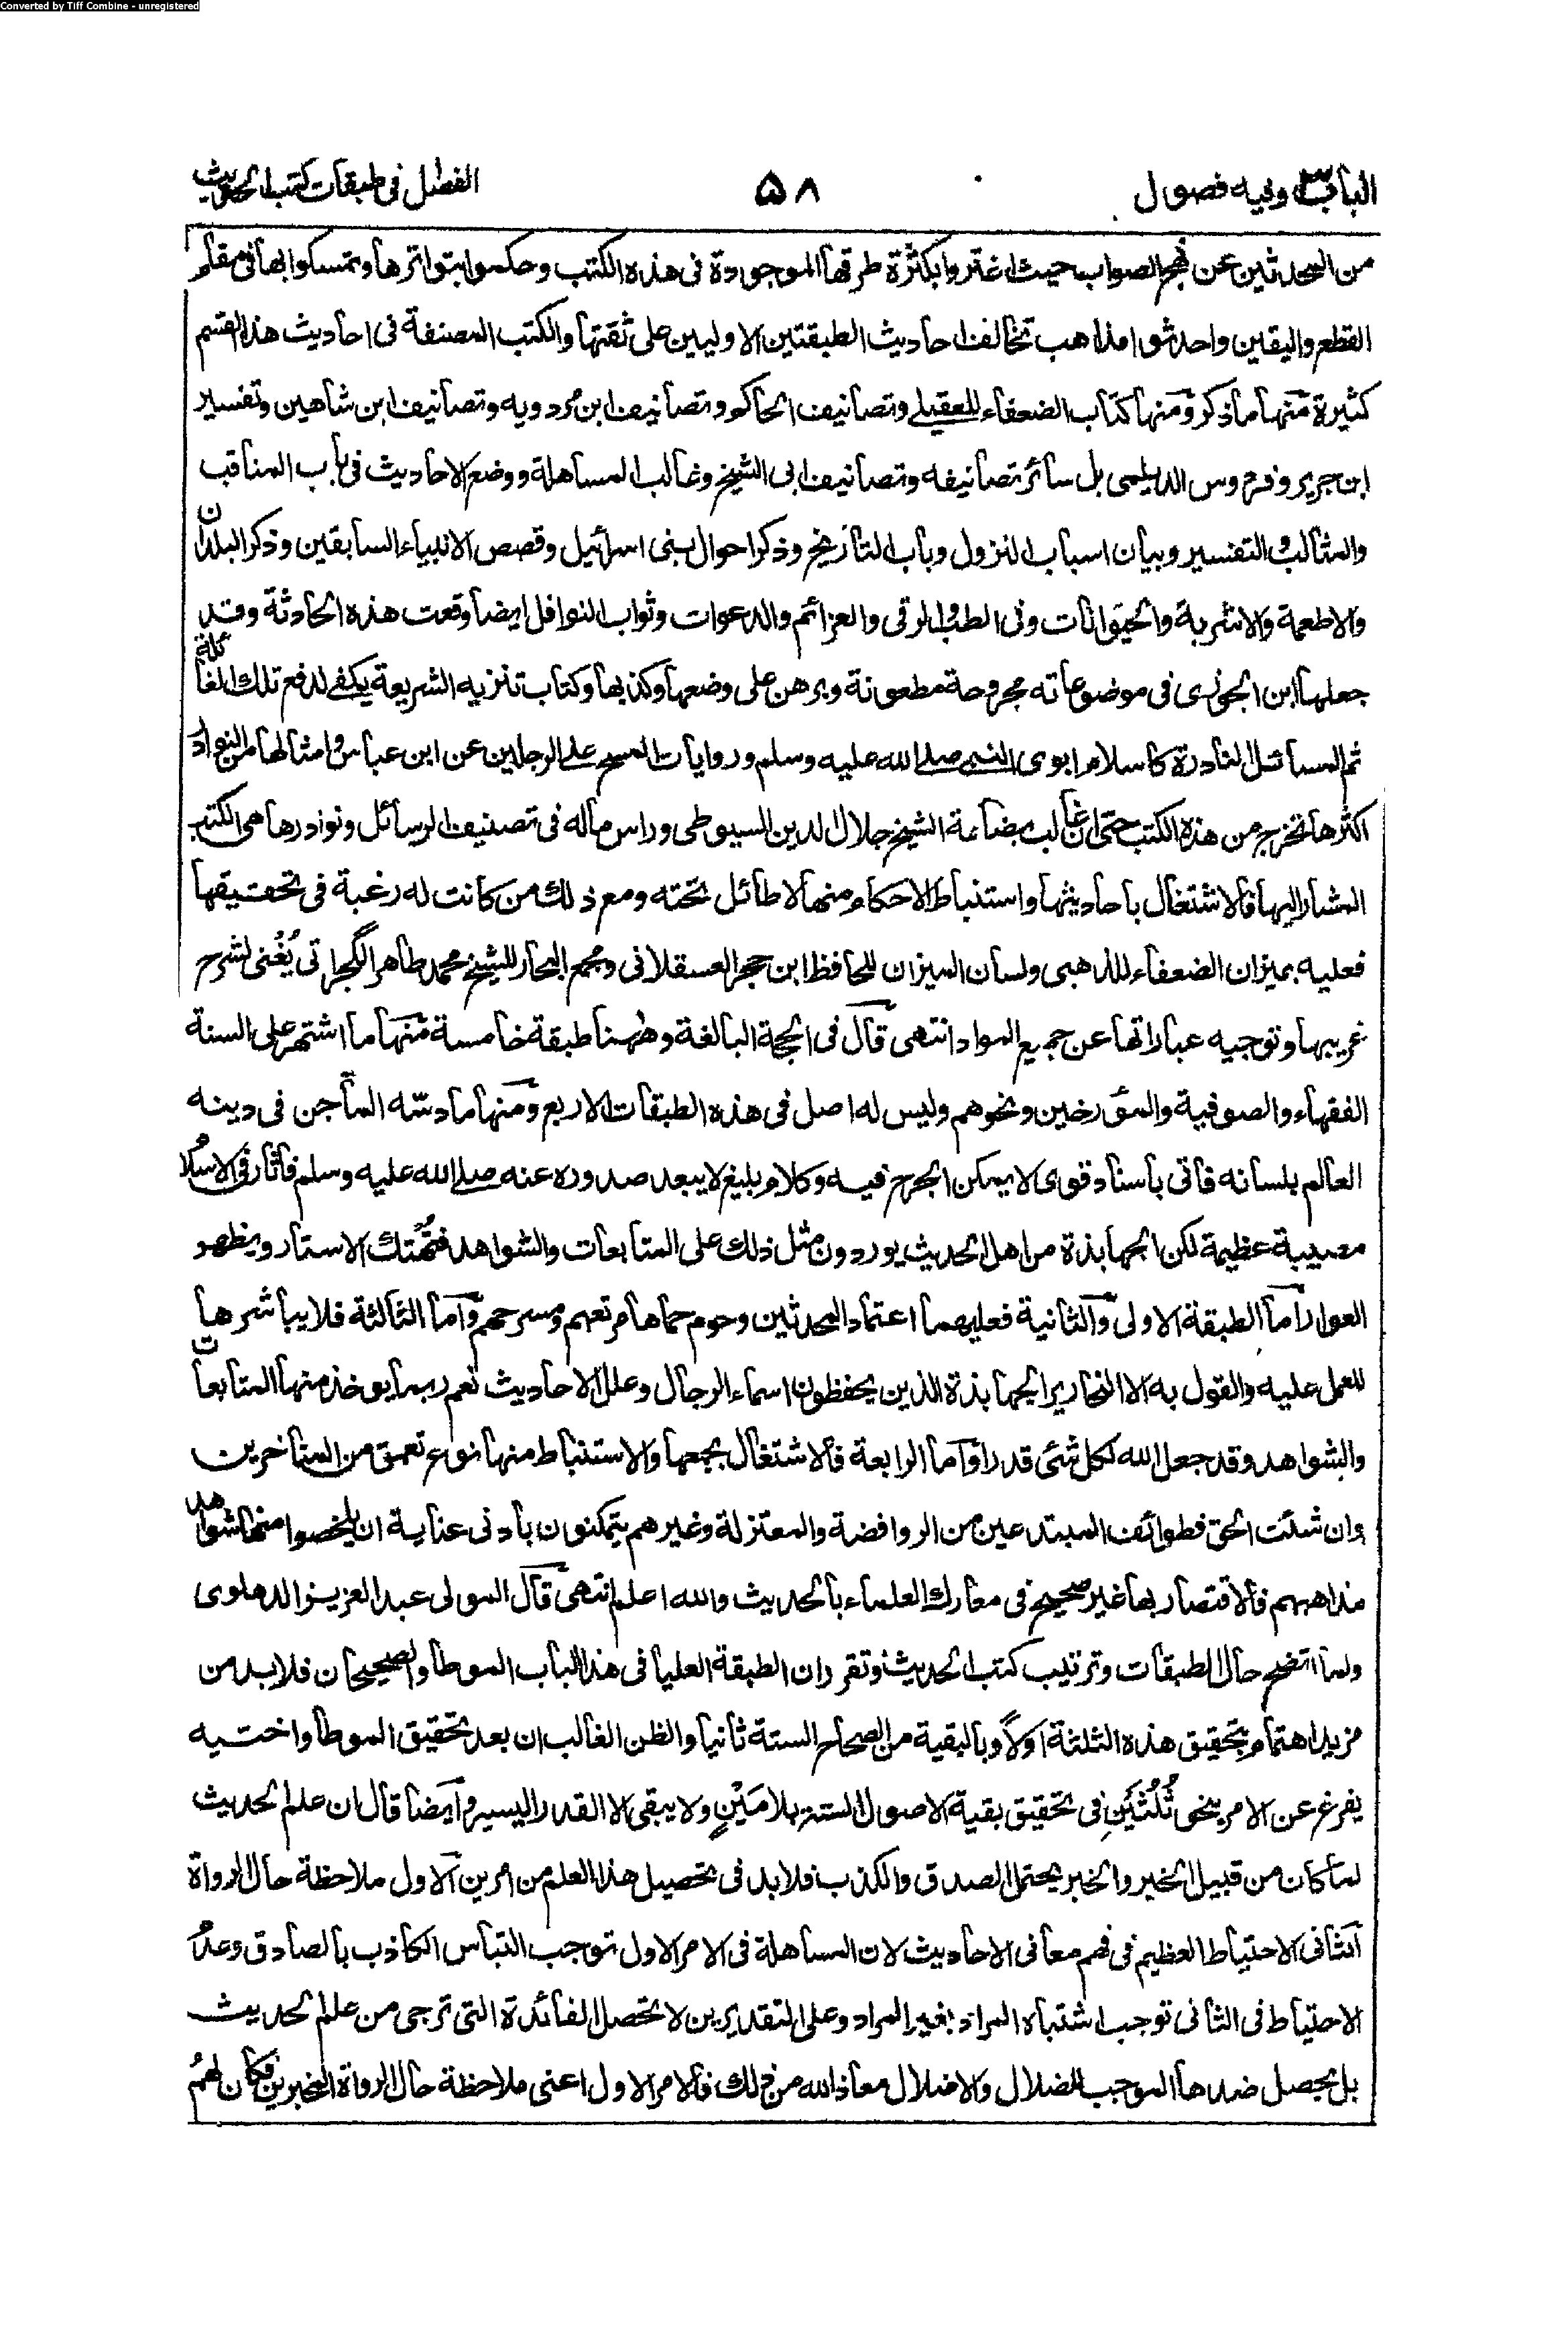 Converted by Tiff Combine - unregistered
الباب٣ وفيه فصول
۵۸
الفصل فى طبقات كتب الحديث
من المحدثين عن نهج الصواب حيث اغتروا بكثرة طرقها الموجودة فى هذه الكتب وحكموا بتواترها وتمسكوا بها فى مقام
القطع واليقين واحدثوا مذاهب تخالف احاديث الطبقتين الاوليين على ثقتها والكتب المصنفة فى احاديث هذا القسم
كثيرة منها ما ذكر ومنها كتاب الضعفاء للعقيلے وتصانيف الحاكم وتصانيف ابن مردويه وتصانيف ابن شاهين وتفسير
ابن جرير وفردوس الديلمى بل سائر تصانيفه وتصانيف ابى الشيخ وغالب المساهلة ووضع الاحاديث فى باب المناقب
والمثالب والتفسير وبيان اسباب النزول وباب التأريخ وذكر احوال بنى اسرائيل وقصص الانبياء السابقين وذكر البلدان
والاطعمة والاشربة والحيوانات وفى الطب والرقى والعزائم والدعوات وثواب النوافل ايضا وقعت هذه الحادثة وقد
جعلها ابن الجوزى فى موضوعاته مجروحة مطعونة وبرهن على وضعها وكذبها وكتاب تنزيه الشريعة يكفے لدفع تلك الغائلة
ثم المسائل النادرة كاسلام ابوى النبى صلے الله عليه وسلم وروايات المسح علے الرجلين عن ابن عباس وامثالها من النوادر
اكثرها تخرج من هذه الكتب حتى ان غالب بضاعة الشيخ جلال الدين السيوطى وراس ماله فى تصنيف الرسائل ونوادرها هى الكتب
المشار اليها فالاشتغال باحاديثها واستنباط الاحكام منها لا طائل تحته ومع ذلك من كانت له رغبة فى تحقيقها
فعليه بميزان الضعفاء للذهبى ولسان الميزان للحافظ ابن حجر العسقلانى ومجمع البحار للشيخ محمد طاهر الگجراتى يُغنى لشرح
غريبها وتوجيه عباراتها عن جميع المواد انتهى قال فى الحجة البالغة وههنا طبقة خامسة منها ما اشتهر على السنة
الفقهاء والصوفية والمؤرخين ونحوهم وليس له اصل فى هذه الطبقات الاربع ومنها ما دسّه الماجن فى دينه
العالم بلسانه فاتى باسناد قوى لا يمكن الجرح فيه وكلام بليغ لا يبعد صدوره عنه صلے الله عليه وسلم فاثار فى الاسلام
مصيبة عظيمة لكن الجهابذة من اهل الحديث يوردون مثل ذلك على المتابعات والشواهد فتُهتك الاستار ويظهر
العوار اما الطبقة الاولى والثانية فعليهما اعتماد المحدثين وحوم حماهما مرتعهم ومسرحهم واما الثالثة فلا يباشرها
للعمل عليه والقول به الا النحارير الجهابذة الذين يحفظون اسماء الرجال وعلل الاحاديث نعم ربما يوخذ منها المتابعات
والشواهد وقد جعل الله لكل شئى قدرا واما الرابعة فالاشتغال بجمعها والاستنباط منها نوع تعمق من المتاخرين
وان شئت الحق فطوائف المبتدعين من الروافضة والمعتزلة وغيرهم يتمكنون بادنى عناية ان يلخصوا منها شواهد
مذاهبهم فالاقتصار بها غير صحيح فى معارك العلماء بالحديث والله اعلم انتهى قال المولى عبد العزيز الدهلوى
ولما اتضح حال الطبقات وترتيب كتب الحديث وتقرر ان الطبقة العليا فى هذا الباب الموطا والصحيحان فلابد من
مزيد اهتمام بتحقيق هذه الثلثة اولاً وبالبقية من الصحاح الستة ثانيا والظن الغالب ان بعد تحقيق الموطا واختيه
يفرغ عن الامر بنحو ثُلُثَيْنِ فى تحقيق بقية الاصول الستة بلا مَيْنٍ ولا يبقى الا القدر اليسير وايضا قال ان علم الحديث
لما كان من قبيل الخبر والخبر يحتمل الصدق والكذب فلابد فى تحصيل هذا العلم من امرين الاول ملاحظة حال الرواة
الثانى الاحتياط العظيم فى فهم معانى الاحاديث لان المساهلة فى الامر الاول توجب التباس الكاذب بالصادق وعدم
الاحتياط فى الثانى توجب اشتباه المراد بغير المراد وعلى التقديرين لا تحصل الفائدة التى ترجى من علم الحديث
بل يحصل ضدها الموجب للضلال والاضلال معاذ الله من ذلك فالامر الاول اعنى ملاحظة حال الرواة المخبرين فكان لهم